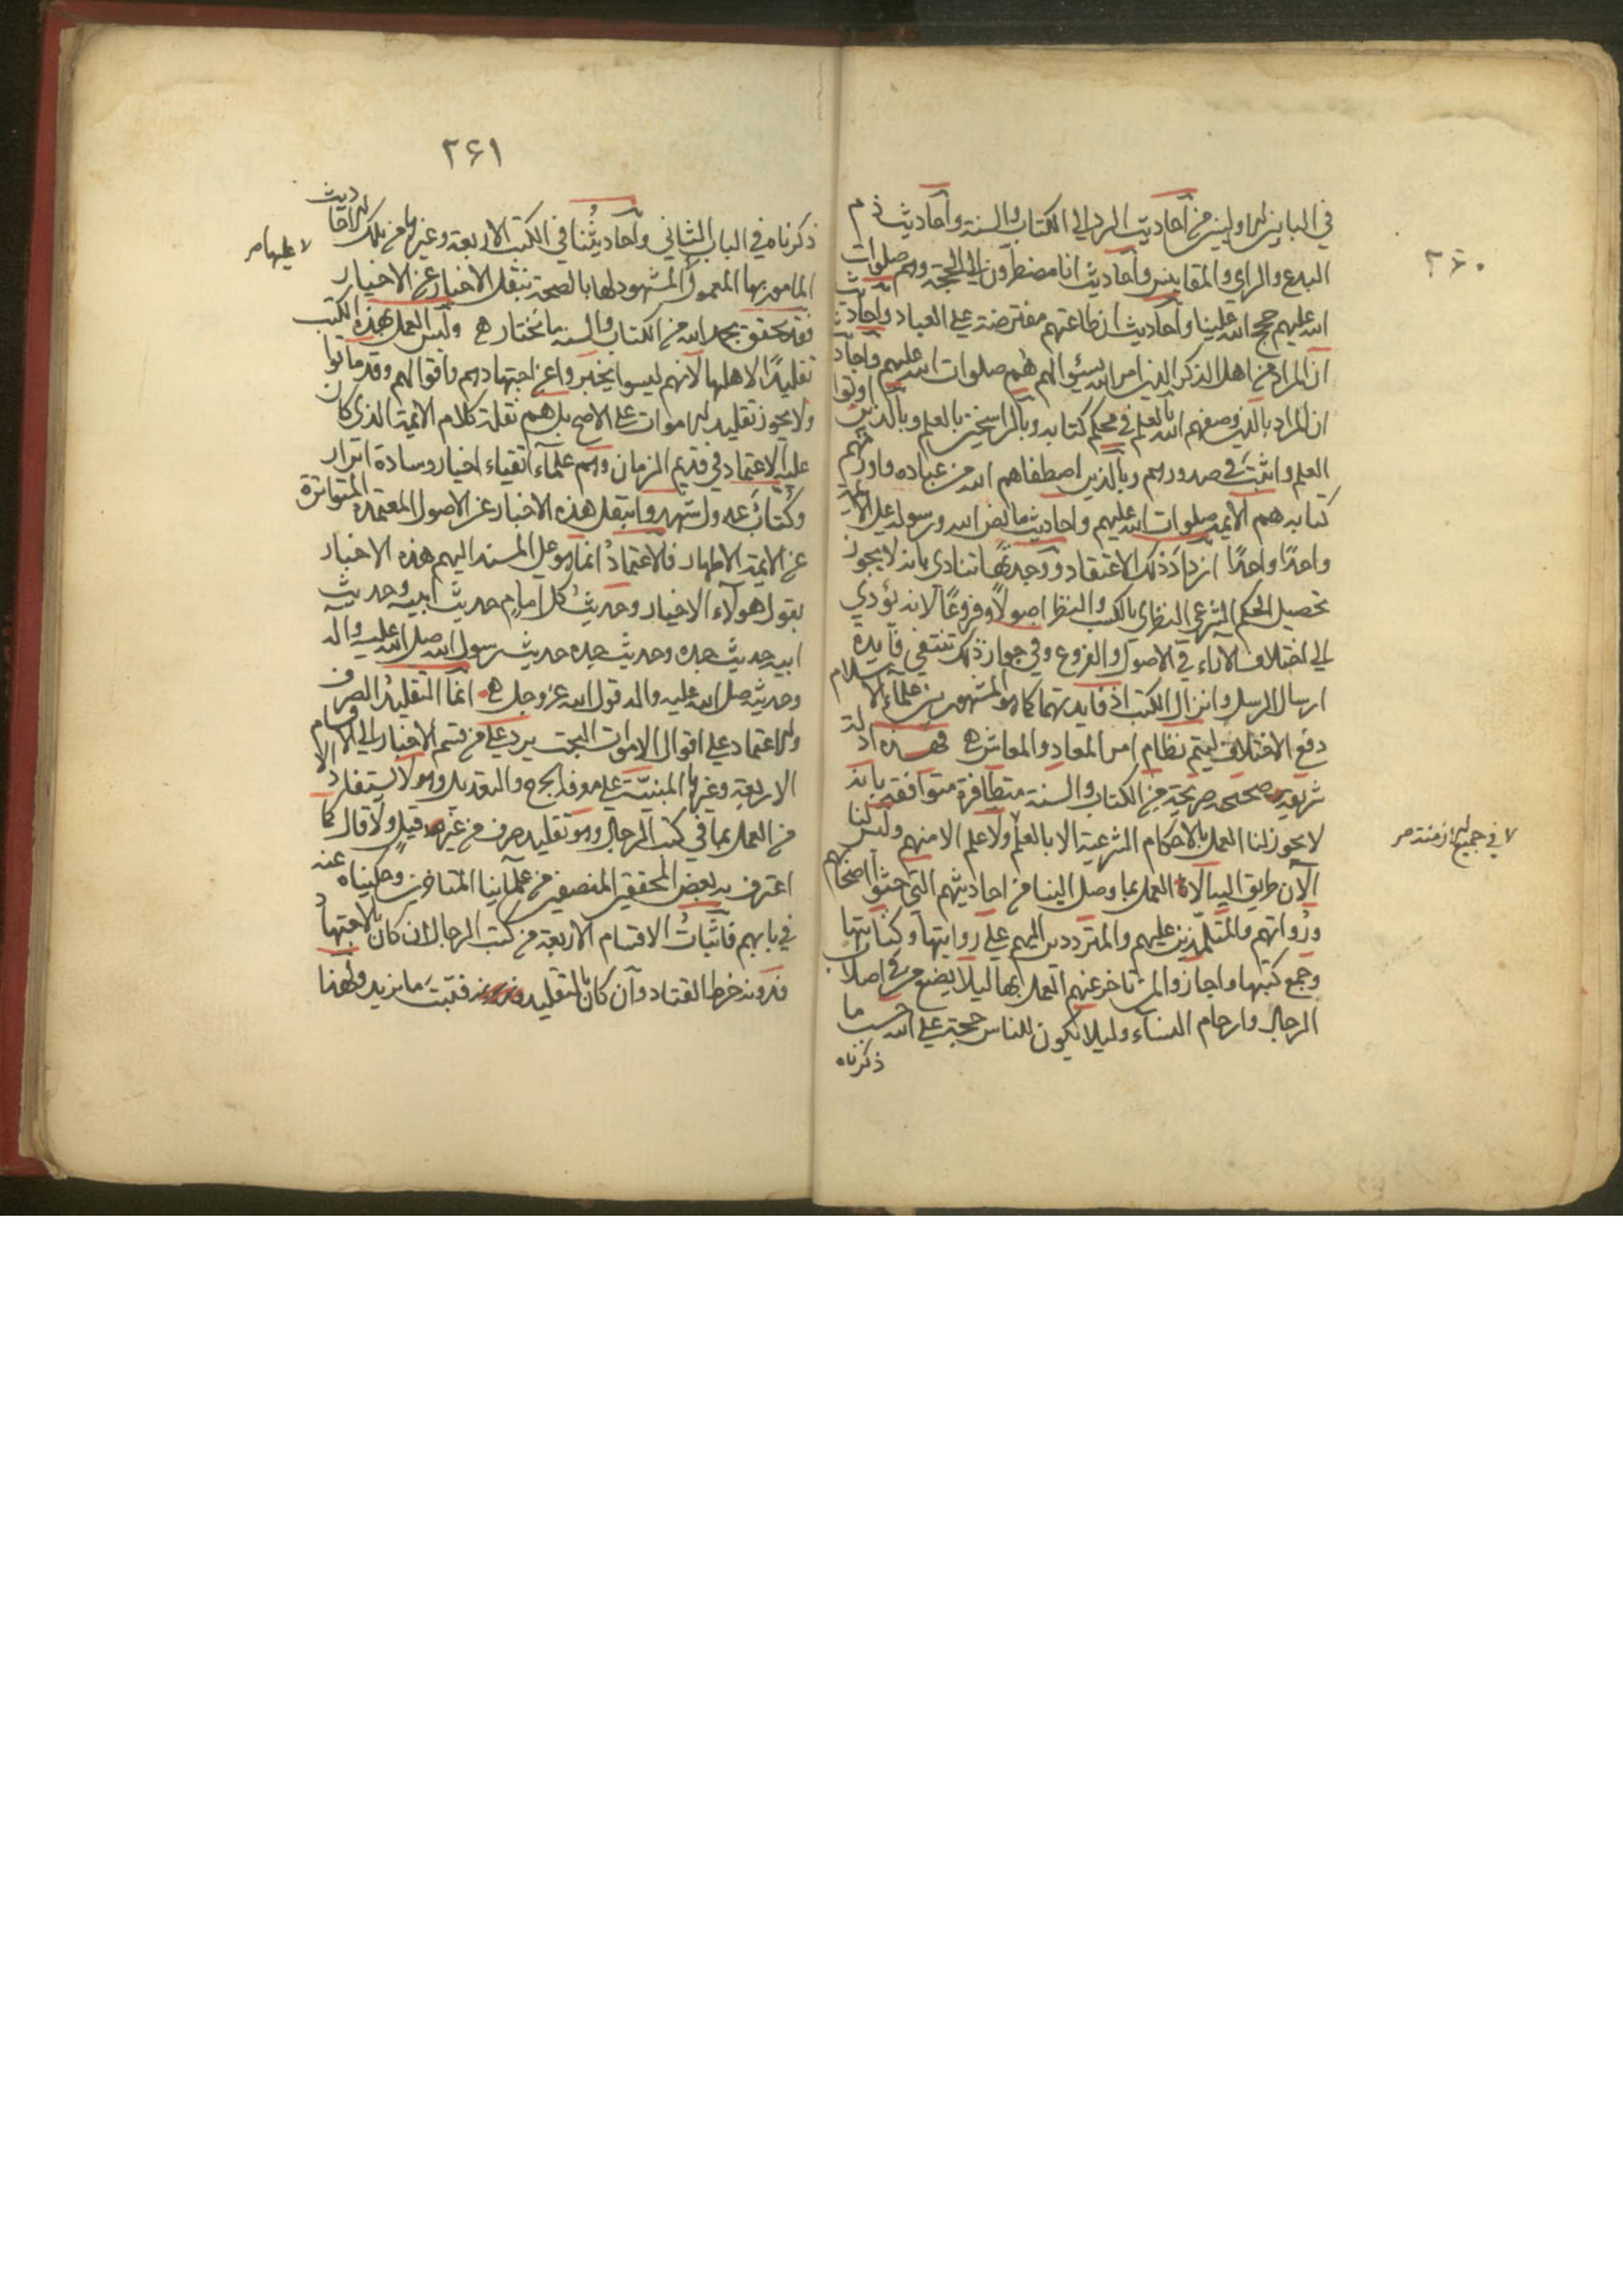 ٢٦٠
في البابين الاولين من أحاديث الرد الى الكتاب والسنة وأحاديث ذم
البدع والراي والمقاييس وأحاديث انا مضطرون الى الحجة وهم صلوات
الله عليهم حجج الله علينا وأحاديث ان طاعتهم مفترضة على العباد واحاديث
ان المراد من اهل الذكر الذين امر الله بسئوالهم هم صلوات الله عليهم واحاديث
ان المراد بالذين وصفهم الله بالعلم في محكم كتابه وبالراسخين بالعلم وبالذين اوتوا
العلم واثبت في صدورهم وبالذين اصطفاهم الله من عباده واورثهم
كتابه هم الايمة صلوات الله عليهم واحاديث ما نص الله ورسوله على الايمة
واحدًا واحدًا ازداد ذلك الاعتقاد ووجدتها تنادي بانه لا يجوز
تحصيل الحكم الشرعي النظري بالكسب والنظر اصولًا وفروعًا لانه يؤدي
الى اختلاف الآراء في الاصول والفروع وفي جواز ذلك تنتفي فايدة
ارسال الرسل وانزال الكتب اذ فايدتهما كما هو المشهور بين علماء الاسلام
دفع الاختلاف ليتم نظام امر المعاد والمعاش ه فهذه ادلة
شريفة صحيحة صريحة من الكتاب والسنة متظافرة متوافقة بانه
لا يجوز لنا العمل بالاحكام الشرعية الا بالعلم ولا علم الا منهم وليس لنا
لا في جميع الازمنة صح
الآن طريق اليه الا العمل بما وصل الينا من احاديثهم التي حثوا اصحابهم
ورواتهم والمتلمذين عليهم والمترددين اليهم على روايتها وكتابتها
وجمع كتبها واجازوا لمن تاخر عنهم العمل بها ليلا يضيع من في اصلاب
الرجال وارحام النساء وليلا تكون للناس حجة على الله حسب ما
ذكرناه
٢٦١
ذكرناه في الباب الثاني وأحاديثنا في الكتب الاربعة وغيرها من تلك الاحاديث
المامور بها المعمول عليها صح المشهود لها بالصحة بنقل الاخيار عن الاخيار
فقد تحقق بحمد الله من الكتاب والسنة ما نختاره وليس العمل بهذه الكتب
تقليدًا لاهلها لانهم ليسوا يخبروا عن اجتهادهم واقوالهم وقد ماتوا
ولا يجوز تقليد الاموات على الاصح بل هم نقلة كلام الايمة الذي كان
عليه الاعتماد في قديم الزمان وهم علماء اتقياء اخيار وسادة ابرار
وكتاب عدول شهروا بنقل هذه الاخبار عن الاصول المعتمدة المتواترة
عن الايمة الاطهار فالاعتماد انما هو على المسند اليهم هذه الاخبار
بقول هولاء الاخيار وحديث كل امام حديث ابيه وحديث
ابيه حديث جده وحديث جده حديث رسول الله صلى الله عليه واله
وحديثه صلى الله عليه واله قول الله عز وجل ه انما التقليد الصرف
والاعتماد على اقوال الاموات البحت يرد على من قسم الاخبار الى الاقسام
الاربعة وغيرها المبنية على معرفة الجرح والتعديل وهو لا يستفاد الا
من العمل بما في كتب الرجال وهو تقليد صرف من غير قيل ولا قال كما
اعترف به بعض المحققين المنصفين من علمآينا المتاخرين وحكيناه عنه
في بابهم فاثبات الاقسام الاربعة من كتب الرجال ان كان بالاجتهاد
فدونه خرط القتاد وان كان بالتقليد فثبت ما نريد ولهذا